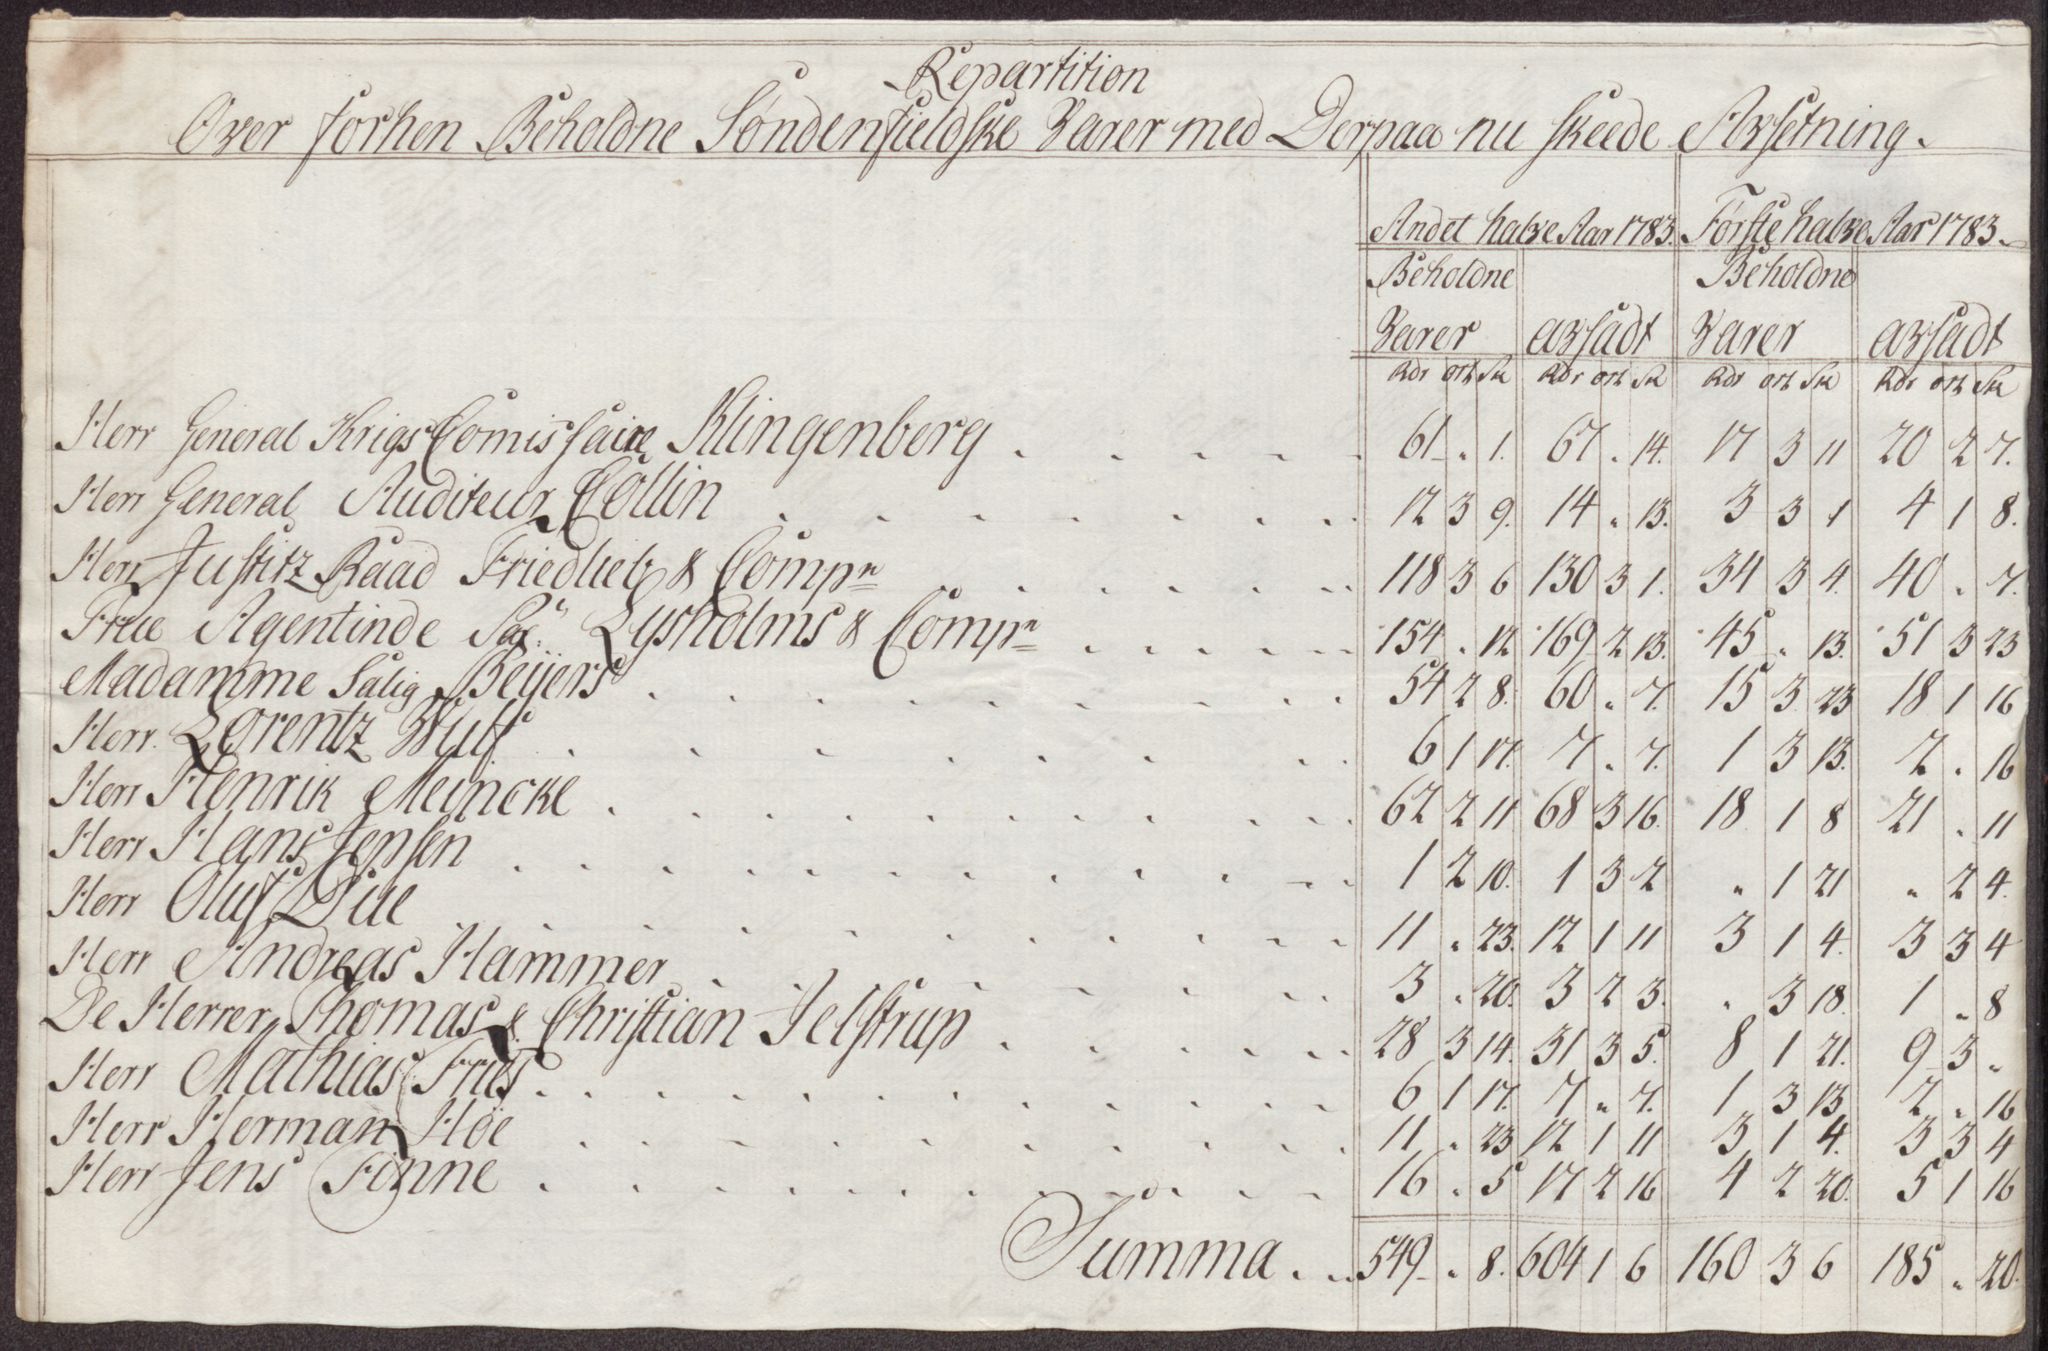 Repartition
Over forhen Beholdne Søndenfieldske Varer med Derpaa nu skeede Avsetning.
Andet halve Aar 1783. Første halve Aar 1783.
Beholdne Beholdne
Varer avsadt Varer avsadt
Rdr ort Sk Rdr ort Sk Rdr ort Sk Rdr ort Sk
Herr General Krigs Comissaire Klingenberg . . . . . 61 " 1. 67 " 14. 17 3 11 20 2 7.
Herr General Auditeur Collin . . . . . . . 12 3 9. 14 " 13. 3 3 1 4 1 8.
Herr Justitz Raad Friedlieb & Compn . . . . . 118 3 6 130 3 1. 34 3 4. 40 " 7.
Frue Agentinde Sal. Lysholms & Compn . . . . . 154 " 12 169 2 13. 45 " 13. 51 3 23
Madamme Salig Beijers . . . . . . . . 54 2 8. 60 " 7. 15 3 23 18 1 16
Herr Lorentz Wulf . . . . . . . . 6 1 17. 7 " 7. 1 3 13. 2 " 16
Herr Henrik Meincke . . . . . . . . 62 2 11 68 3 16. 18 1 8 21 " 11
Herr Hans Jensen . . . . . . . . . 1 2 10. 1 3 2 " 1 21 " 2 4.
Herr Oluf Due . . . . . . . . . 11 " 23. 12 1 11 3 1 4. 3 3 4
Herr Andreas Hammer . . . . . . . 3 " 20. 3 2 3. " 3 18. 1 " 8
De Herrer Thomas & Christian Jelstrup . . . . . 28 3 14. 31 3 5. 8 1 21. 9 3 "
Herr Mathias Friis . . . . . . . . . 6 1 17. 7 " 7. 1 3 13. 2 " 16
Herr Herman Hoe . . . . . . . . 11 " 23 12 1 11 3 1 4. 3 3 4
Herr Jens Finne . . . . . . . . . 16 " 5 17 2 16 4 2 20. 5 1 16
Summa . . 549 " 8. 604 1 6 160 3 6 185 " 20.